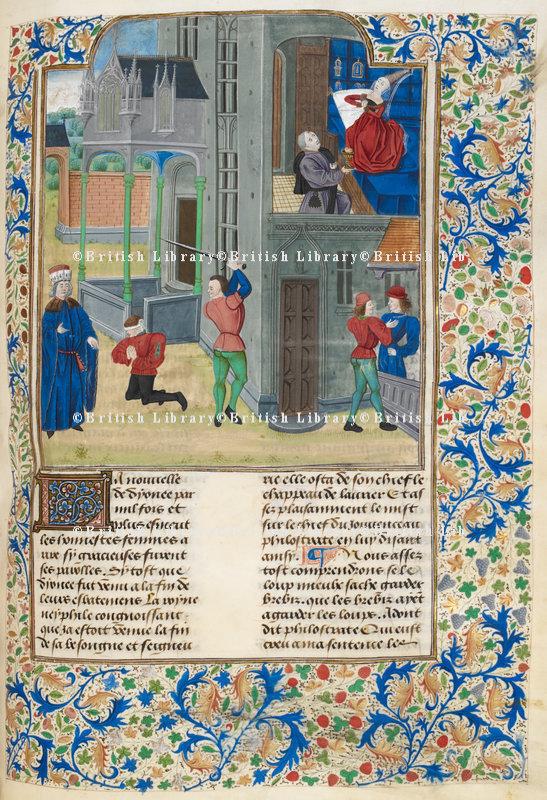 ©British Library©British Library©British Lib
©British Library©British Library©British Lib
La nouuelle
de dyonee par
mil fois et
plus esmeut
les honnestes femmes a
sy gracieuses furent
ses parolles. Sy tost que
dyonee fut venu a la fin de
leurs esbatemens La royne
neyphile congnoissant
que ja estoit venue la fin
de sa besongne et seigneu
rie elle osta de son chief le
chappeau de laurier Et as
sez plaisamment le mist
sur le chief du Jouuenceau
philostrate en luy disant
ainsy. Nous assez
tost comprendrons se le
loup sache garder
brebiz. que les brebiz
garder les loups. Adont
dit philostrate Qui eust
creu a ma sentence